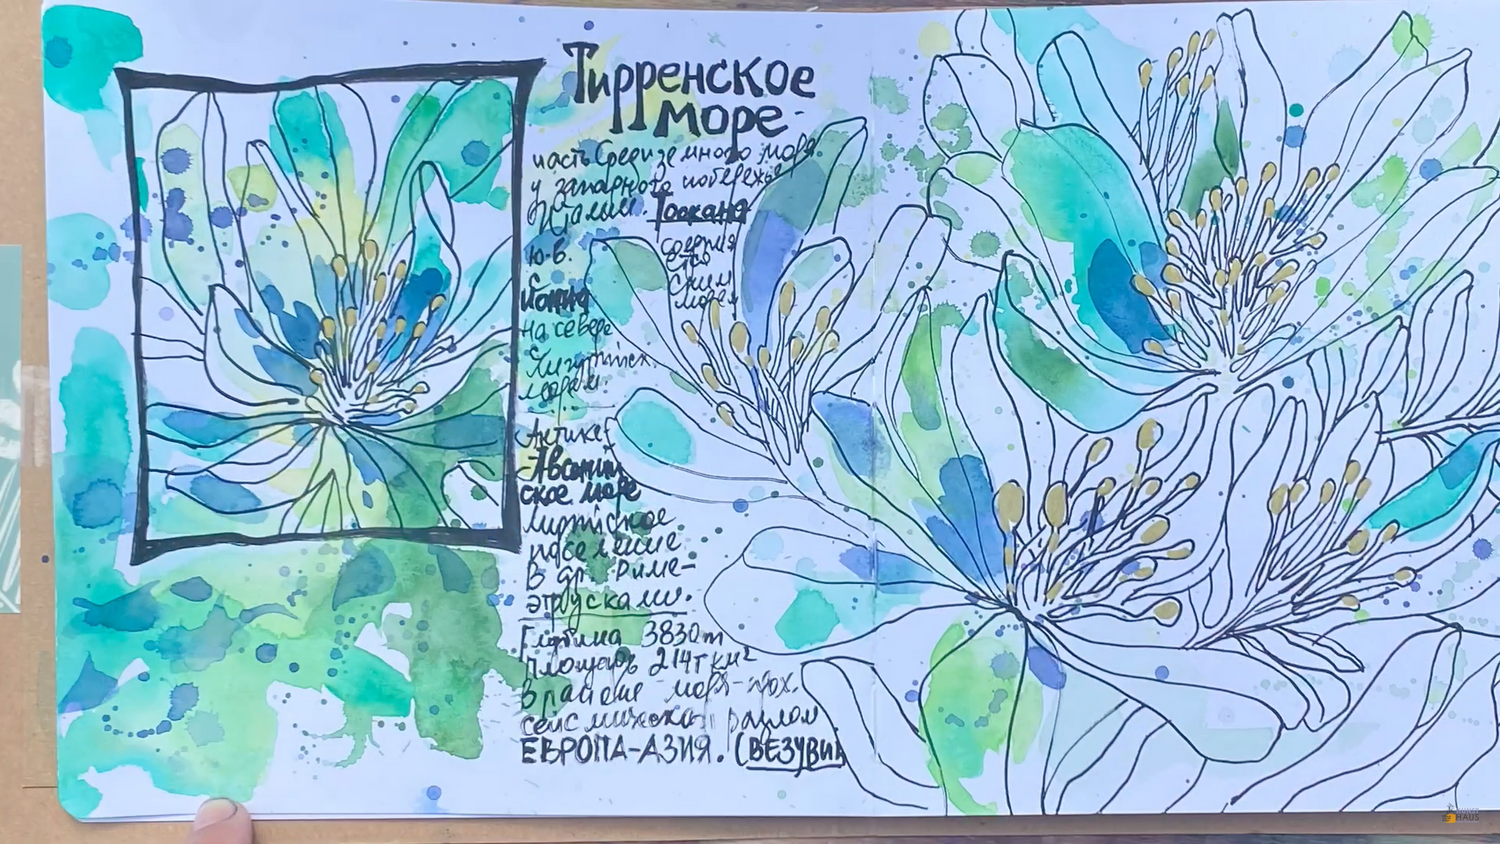 Тирренское
море
часть Средиземного моря
у западного побережья
Италии. Тоскана
ю.в.
соединя
ется
с ким
морем
на севере
морем.
Антике
-Авсоний
ское море
поселение
в др. Риме-
этрусками.
Глубина 3830m
площадь 214т км²
В районе моря-прох.
сейсмическая разлом
ЕВРОПА-АЗИЯ. (ВЕЗУВИЙ
HAUS